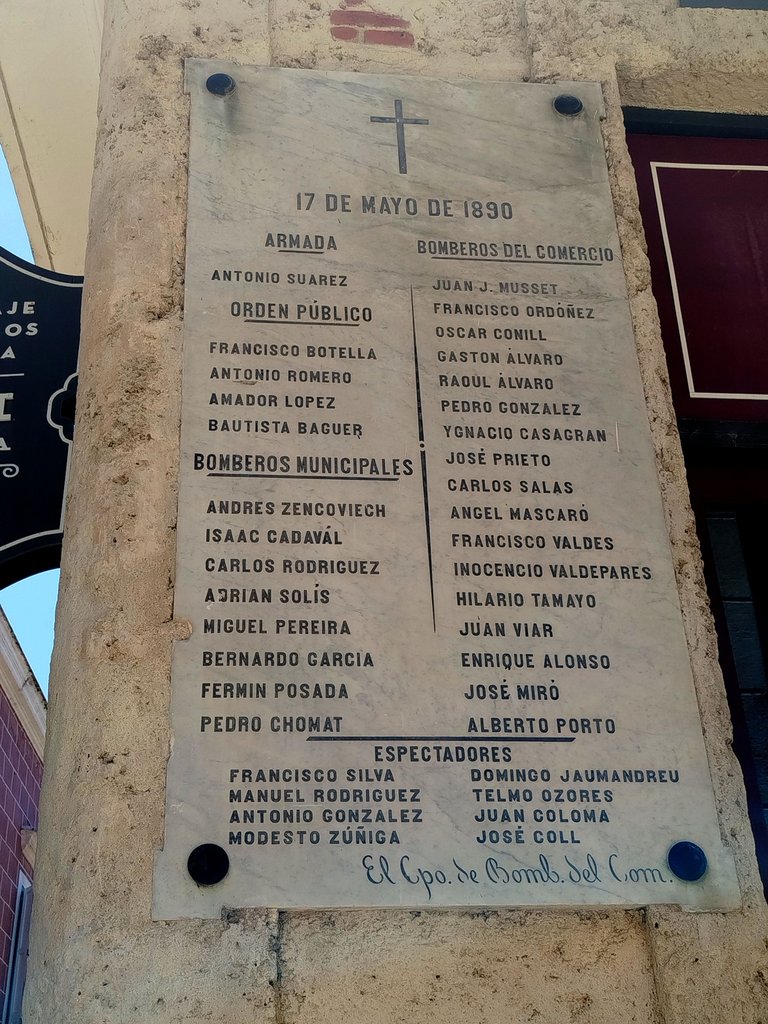 17 DE MAYO DE 1890
ARMADA
ANTONIO SUAREZ
ORDEN PÚBLICO
FRANCISCO BOTELLA
ANTONIO ROMERO
AMADOR LOPEZ
BAUTISTA BAGUER
BOMBEROS MUNICIPALES
ANDRES ZENCOVIECH
ISAAC CADAVÁL
CARLOS RODRIGUEZ
ADRIAN SOLÍS
MIGUEL PEREIRA
BERNARDO GARCIA
FERMIN POSADA
PEDRO CHOMAT
BOMBEROS DEL COMERCIO
JUAN J. MUSSET
FRANCISCO ORDÓÑEZ
OSCAR CONILL
GASTON ÀLVARO
RAOUL ÀLVARO
PEDRO GONZALEZ
YGNACIO CASAGRAN
JOSÉ PRIETO
CARLOS SALAS
ANGEL MASCARÓ
FRANCISCO VALDES
INOCENCIO VALDEPARES
HILARIO TAMAYO
JUAN VIAR
ENRIQUE ALONSO
JOSÉ MIRÓ
ALBERTO PORTO
ESPECTADORES
FRANCISCO SILVA
MANUEL RODRIGUEZ
ANTONIO GONZALEZ
MODESTO ZÚÑIGA
DOMINGO JAUMANDREU
TELMO OZORES
JUAN COLOMA
JOSÉ COLL
El Cpo. de Bomb. del Com.